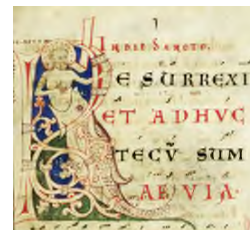 IN DIE SANCTO.
RESURREXI
ET ADHVC
TECV̄ SUM
AEVIA